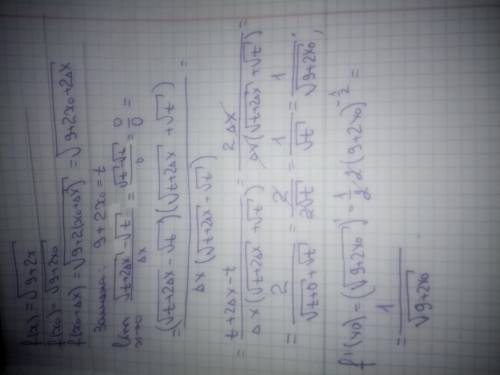 f(x) = √(9+2x)
f(x₀) = √(9+2x₀)
f(x₀+Δx) = √(9+2(x₀+Δx)) = √(9+2x₀+2Δx)
Замена: 9+2x₀ = t
lim x→0 (√(t+2Δx) - √t)/Δx = (√t-√t)/0 = 0/0 =
= (√(t+2Δx) - √t)(√(t+2Δx) + √t)/(Δx(√(t+2Δx) + √t)) =
= (t+2Δx-t)/(Δx(√(t+2Δx) + √t)) = 2Δx/(Δx(√(t+2Δx) + √t)) =
= 2/(√(t+0) + √t) = 2/(2√t) = 1/√t = 1/√(9+2x₀);
f'(x₀) = (√(9+2x₀))' = 1/2·2·(9+2x₀)^(-1/2) =
= 1/√(9+2x₀)